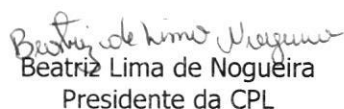 Beatriz de Lima Nogueira
Beatriz Lima de Nogueira
Presidente da CPL